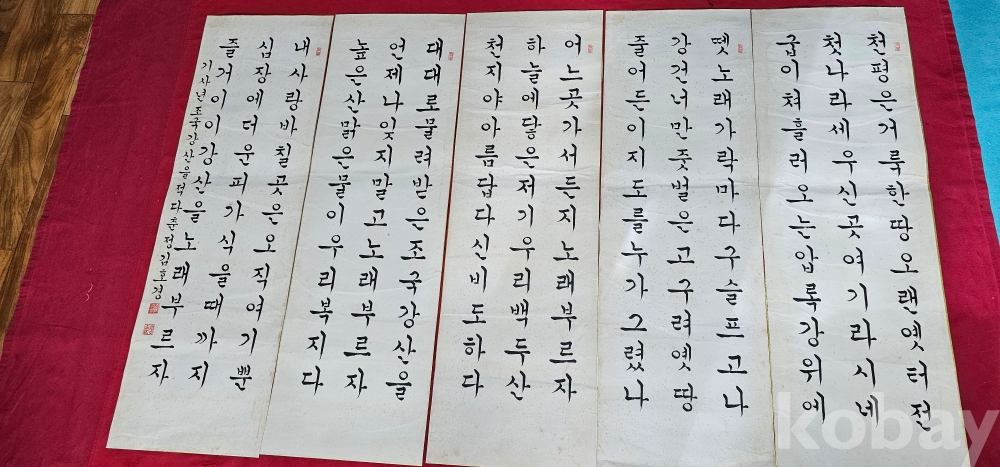 천평은거룩한땅오랜옛터전
첫나라세우신곳여기라시네
굽이쳐흘러오는압록강위에
뗏노래가락마다구슬프고나
강건너만줏벌은고구려옛땅
줄어든이지도를누가그렸나
어느곳가서든지노래부르자
하늘에닿은저기우리백두산
천지야아름답다신비도하다
대대로물려받은조국강산을
언제나잊지말고노래부르자
높은산맑은물이우리복지다
내사랑바칠곳은오직여기뿐
심장에더운피가식을때까지
즐거이이강산을노래부르자
기사년조국강산을적다춘정김호경
kobay